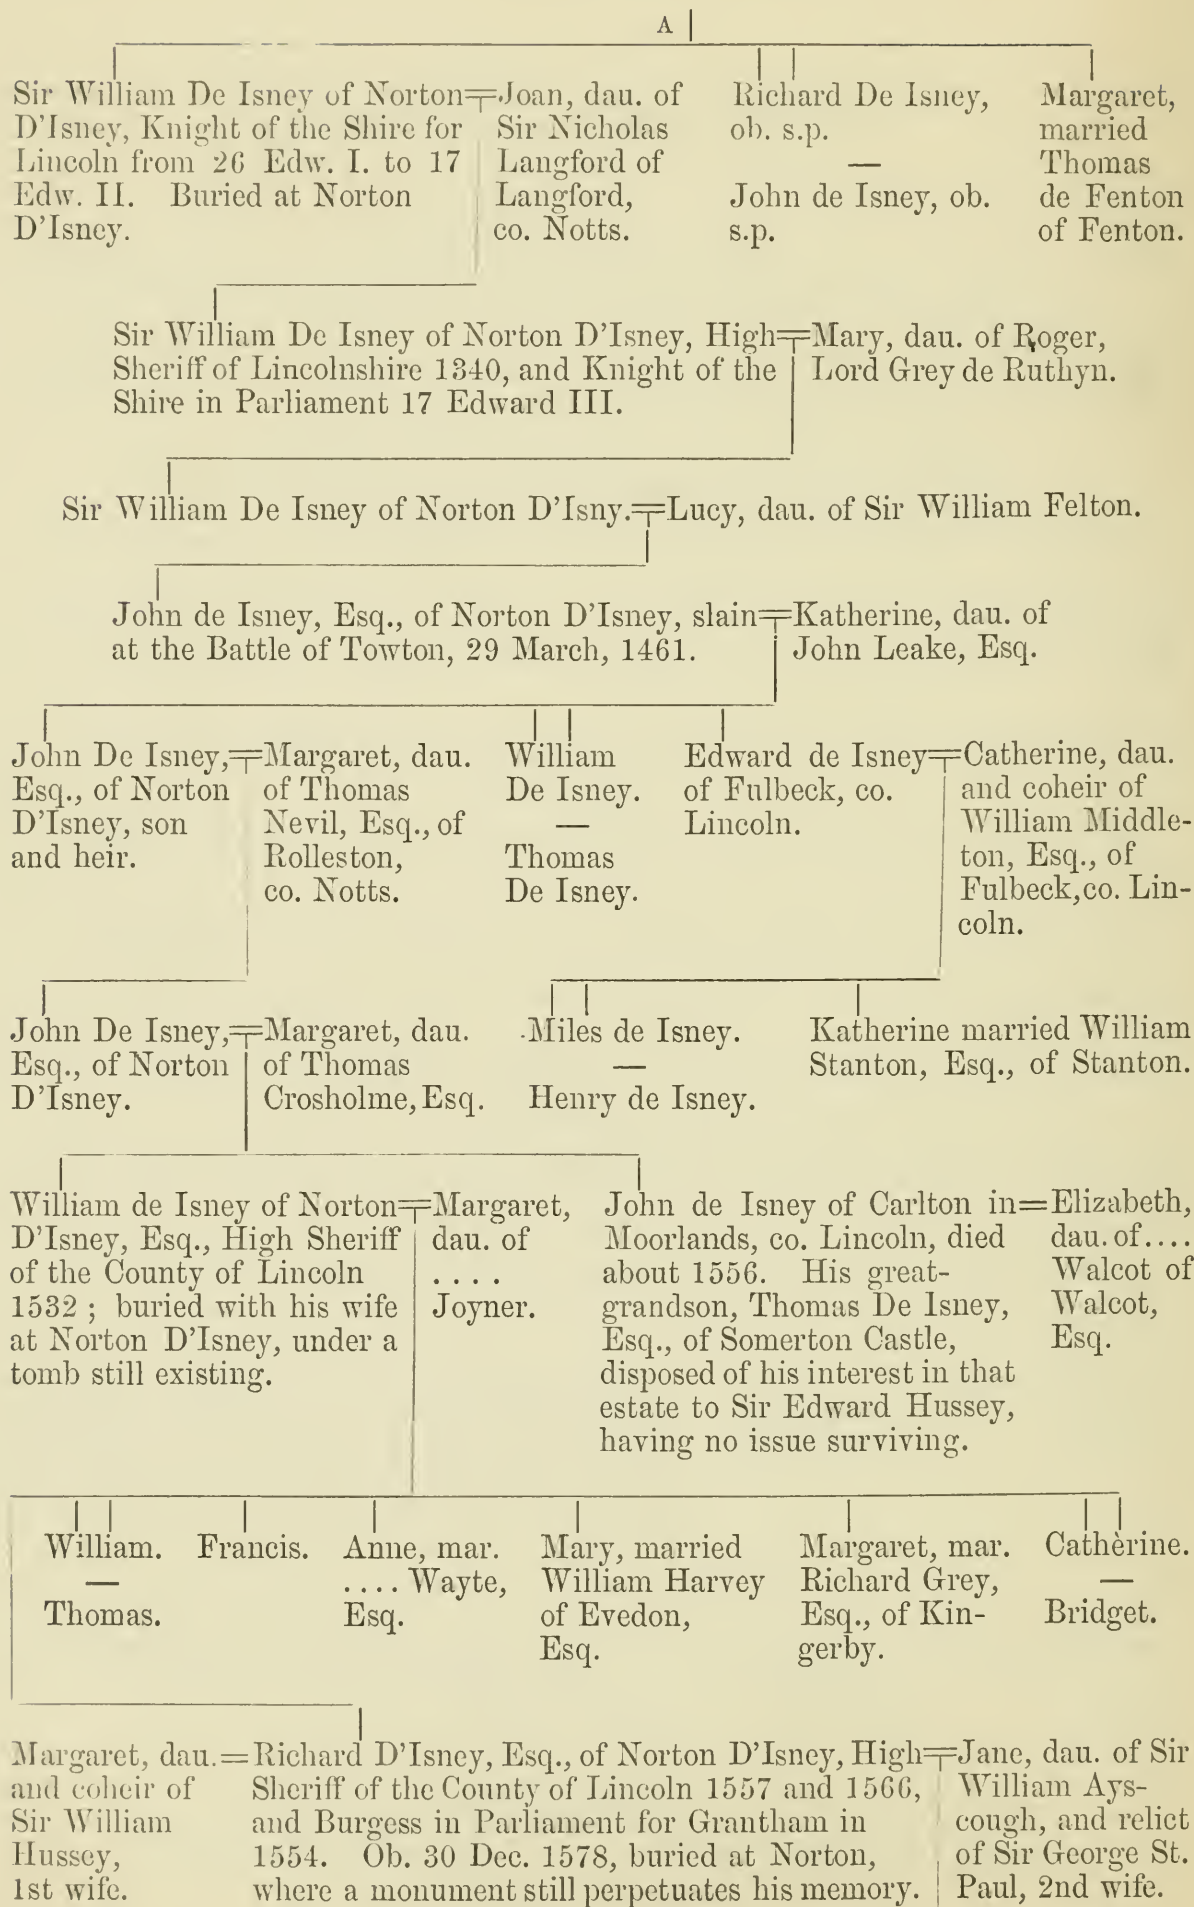 A
Sir William De Isney of Norton
D'Isney, Knight of the Shire for
Lincoln from 26 Edw. I. to 17
Edw. II. Buried at Norton
D'Isney.
Joan, dau. of
Sir Nicholas
Langford of
Langford,
co. Notts.
Richard De Isney,
ob. s.p.
—
John de Isney, ob.
s.p.
Margaret,
married
Thomas
de Fenton
of Fenton.
Sir William De Isney of Norton D'Isney, High
Sheriff of Lincolnshire 1340, and Knight of the
Shire in Parliament 17 Edward III.
Mary, dau. of Roger,
Lord Grey de Ruthyn.
Sir William De Isney of Norton D'Isny.
Lucy, dau. of Sir William Felton.
John de Isney, Esq., of Norton D'Isney, slain
at the Battle of Towton, 29 March, 1461.
Katherine, dau. of
John Leake, Esq.
John De Isney,
Esq., of Norton
D'Isney, son
and heir.
Margaret, dau.
of Thomas
Nevil, Esq., of
Rolleston,
co. Notts.
William
De Isney.
—
Thomas
De Isney.
Edward de Isney
of Fulbeck, co.
Lincoln.
Catherine, dau.
and coheir of
William Middle-
ton, Esq., of
Fulbeck, co. Lin-
coln.
John De Isney,
Esq., of Norton
D'Isney.
Margaret, dau.
of Thomas
Crosholme, Esq.
Miles de Isney.
—
Henry de Isney.
Katherine married William
Stanton, Esq., of Stanton.
William de Isney of Norton
D'Isney, Esq., High Sheriff
of the County of Lincoln
1532 ; buried with his wife
at Norton D'Isney, under a
tomb still existing.
Margaret,
dau. of
. . . .
Joyner.
John de Isney of Carlton in
Moorlands, co. Lincoln, died
about 1556. His great-
grandson, Thomas De Isney,
Esq., of Somerton Castle,
disposed of his interest in that
estate to Sir Edward Hussey,
having no issue surviving.
Elizabeth,
dau. of . . . .
Walcot of
Walcot,
Esq.
William.
—
Thomas.
Francis.
Anne, mar.
. . . . Wayte,
Esq.
Mary, married
William Harvey
of Evedon,
Esq.
Margaret, mar.
Richard Grey,
Esq., of Kin-
gerby.
Catherine.
—
Bridget.
Margaret, dau.
and coheir of
Sir William
Hussey,
1st wife.
Richard D'Isney, Esq., of Norton D'Isney, High
Sheriff of the County of Lincoln 1557 and 1566,
and Burgess in Parliament for Grantham in
1554. Ob. 30 Dec. 1578, buried at Norton,
where a monument still perpetuates his memory.
Jane, dau. of Sir
William Ays-
cough, and relict
of Sir George St.
Paul, 2nd wife.